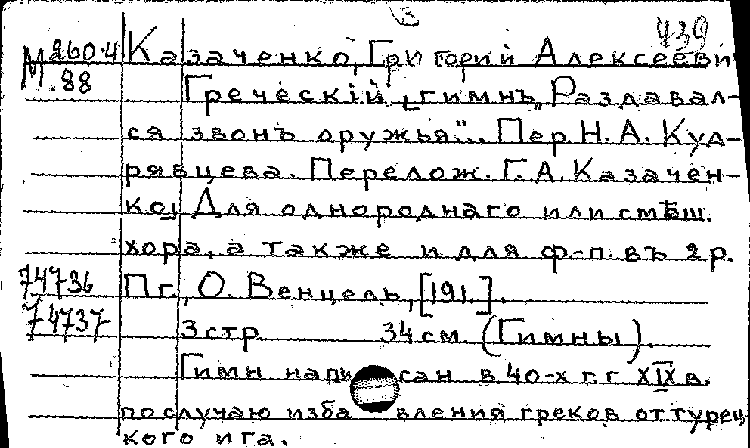 439
М 260.4 Казаченко, Григорий Алексеевич
.88 Греческiй [гимнъ „Раздавал-
ся звонъ оружья"... Пер. Н. А. Куд-
рявцева. Перелож. Г. А. Казачен-
ко] Для однороднаго или смѣш.
хора, а также и для ф-п. въ 2 р.
74736 Пг., О. Венцель, [191 ].
74737 3 стр. 34 см (Гимны).
Гимн написан в 40-х г.г XIX в.
по случаю избавления греков от турец
кого ига.